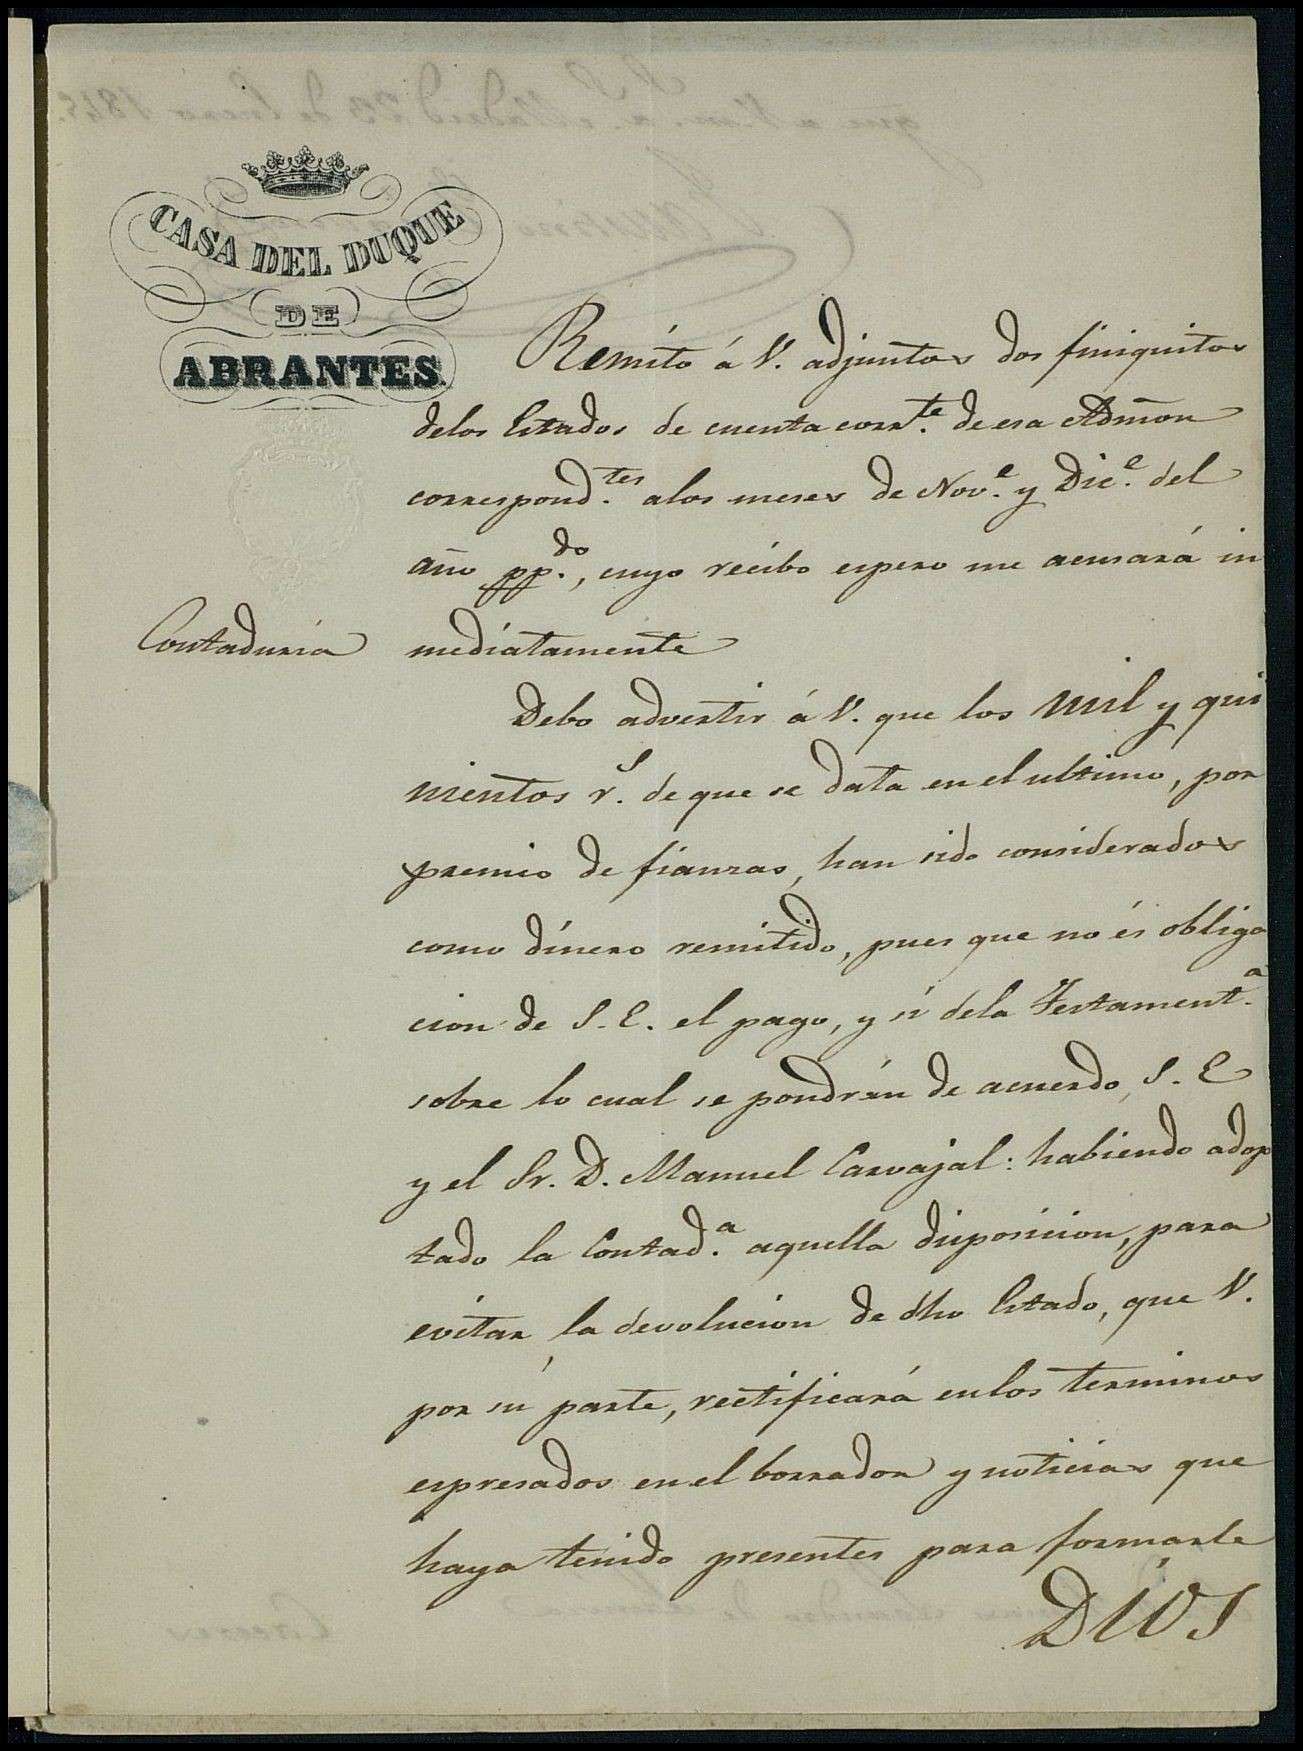 CASA DEL DUQUE
DE
ABRANTES
Remito á V. adjuntos dos finiquitos
delos Estados de cuenta corr.te de esa Admōn
correspond.tes alos meses de Nov.e y Dic.e del
año pp.do, cuyo recibo espero me acusará in
Contaduría
mediatamente
Debo advertir á V. que los mil y qui
nientos r.s de que se data en el ultimo, por
premio de fianzas, han sido considerados
como dinero remitido, pues que no és obliga
cion de S. E. el pago, y sí dela Testament.a
sobre lo cual se pondrán de acuerdo, S. E
y el Sr. D. Manuel Carvajal: habiendo adop
tado la Contad.a aquella disposicion, para
evitar la devolucion de dho Estado, que V.
por sú parte, rectificará enlos terminos
espresados en el borrador y noticias que
haya tenido presentes para formarle
DIOS